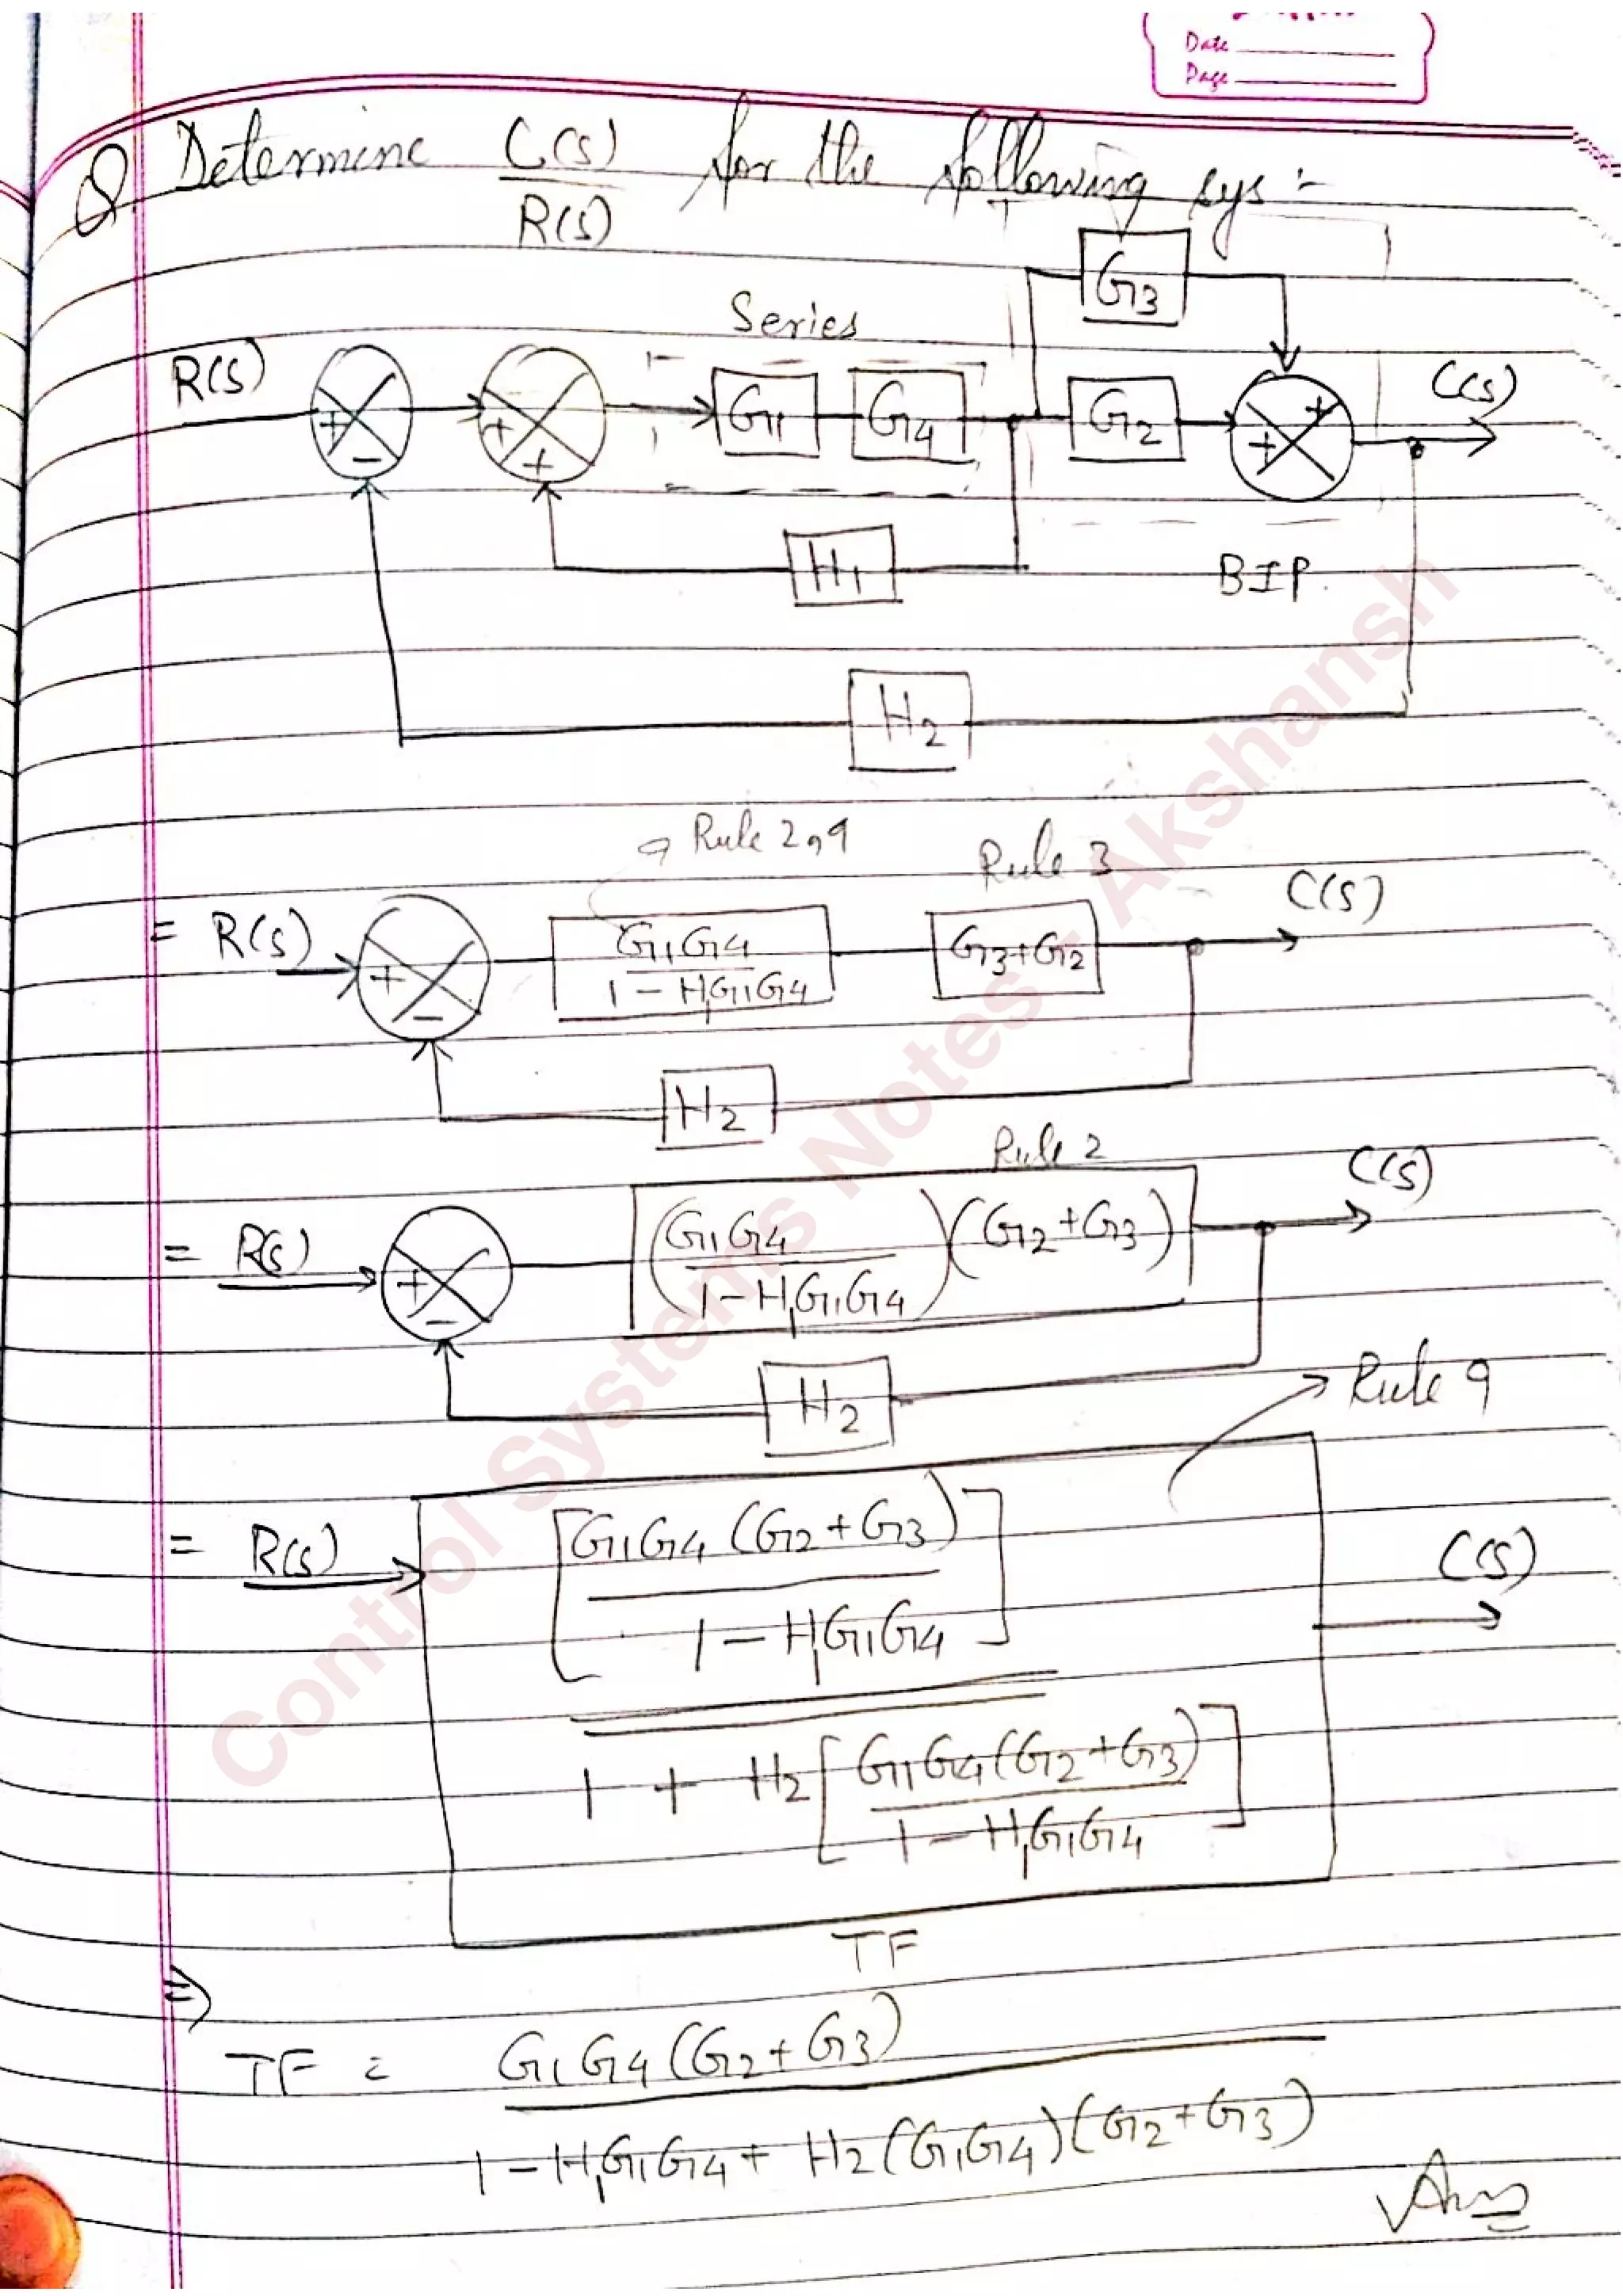 Date
Page
Q Determine C(s)/R(s) for the following sys :-
G3
Series
R(s) + - + + G1 G4 G2 + + C(s)
H1
BIP
H2
Rule 2,9 Rule 3
= R(s) + - G1G4/(1 - H1G1G4) G3+G2 C(s)
H2
Rule 2
= R(s) + - (G1G4/(1 - H1G1G4))(G2+G3) C(s)
H2
Rule 9
= R(s) [G1G4(G2+G3)/(1 - H1G1G4)] C(s)
1 + H2[G1G4(G2+G3)/(1 - H1G1G4)]
TF
⇒
TF = G1G4(G2+G3)
1 - H1G1G4 + H2(G1G4)(G2+G3)
Ans
Control Systems Notes - Akshansh